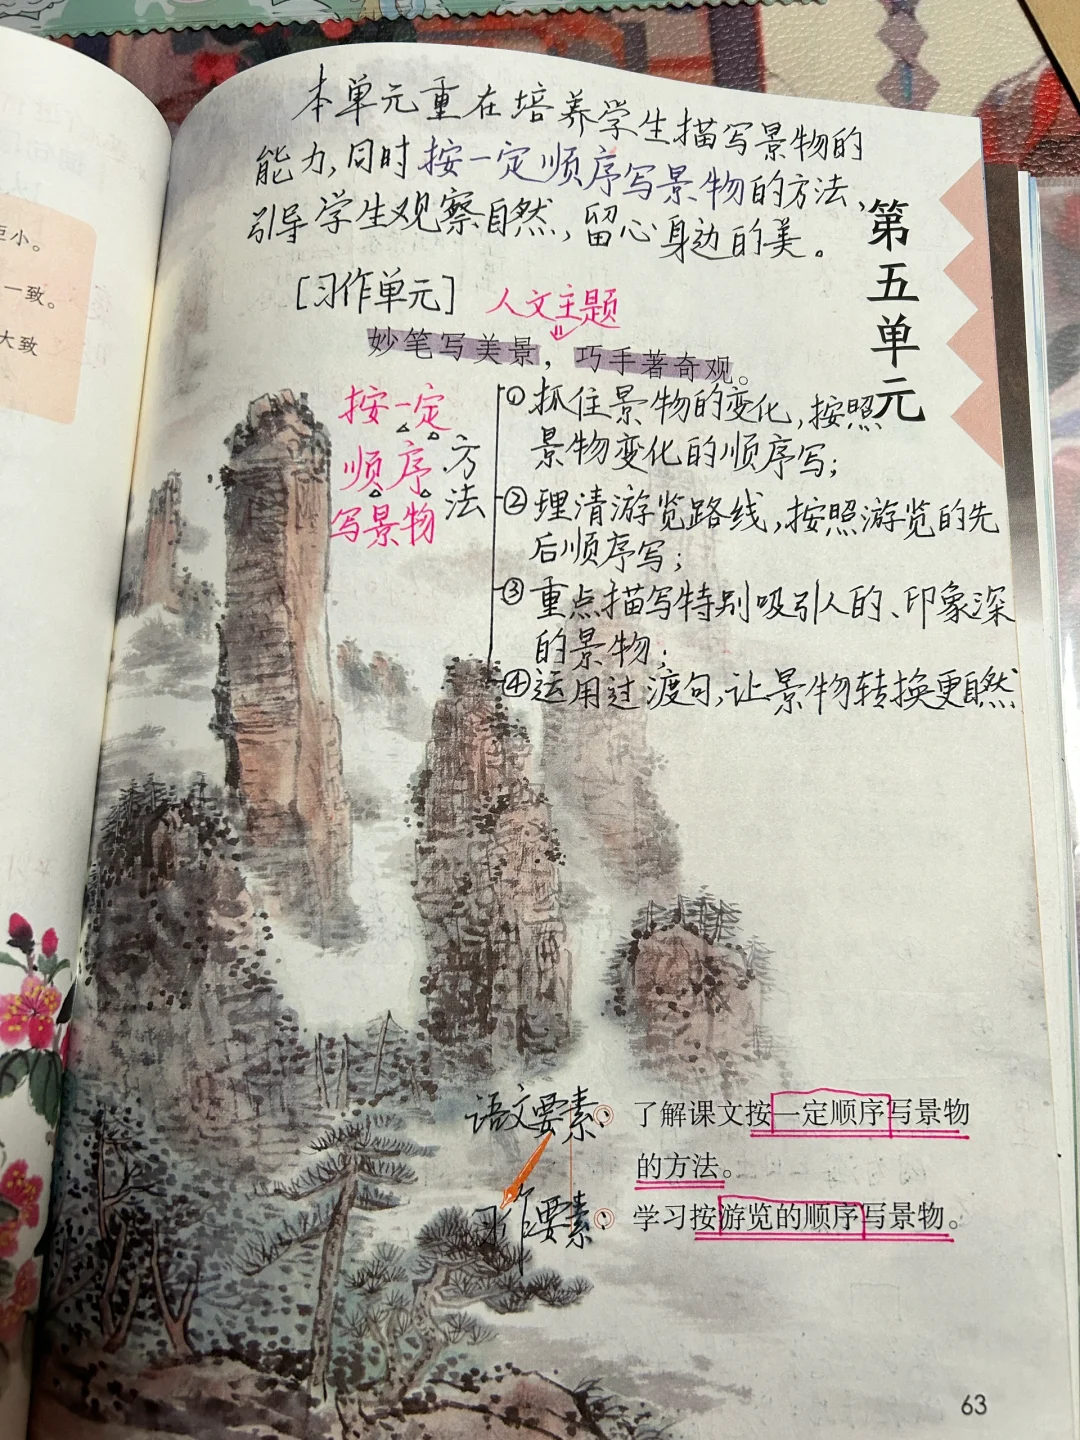 本单元重在培养学生描写景物的
能力,同时按一定顺序写景物的方法,
引导学生观察自然,留心身边的美。
第五单元
[习作单元]
人文主题
妙笔写美景，巧手著奇观。
按一定
顺序
写景物
方法
①抓住景物的变化,按照
景物变化的顺序写;
②理清游览路线,按照游览的先
后顺序写;
③重点描写特别吸引人的、印象深
的景物;
④运用过渡句,让景物转换更自然
语文要素:
了解课文按一定顺序写景物
的方法。
习作要素:
学习按游览的顺序写景物。
63
小。
一致。
大致